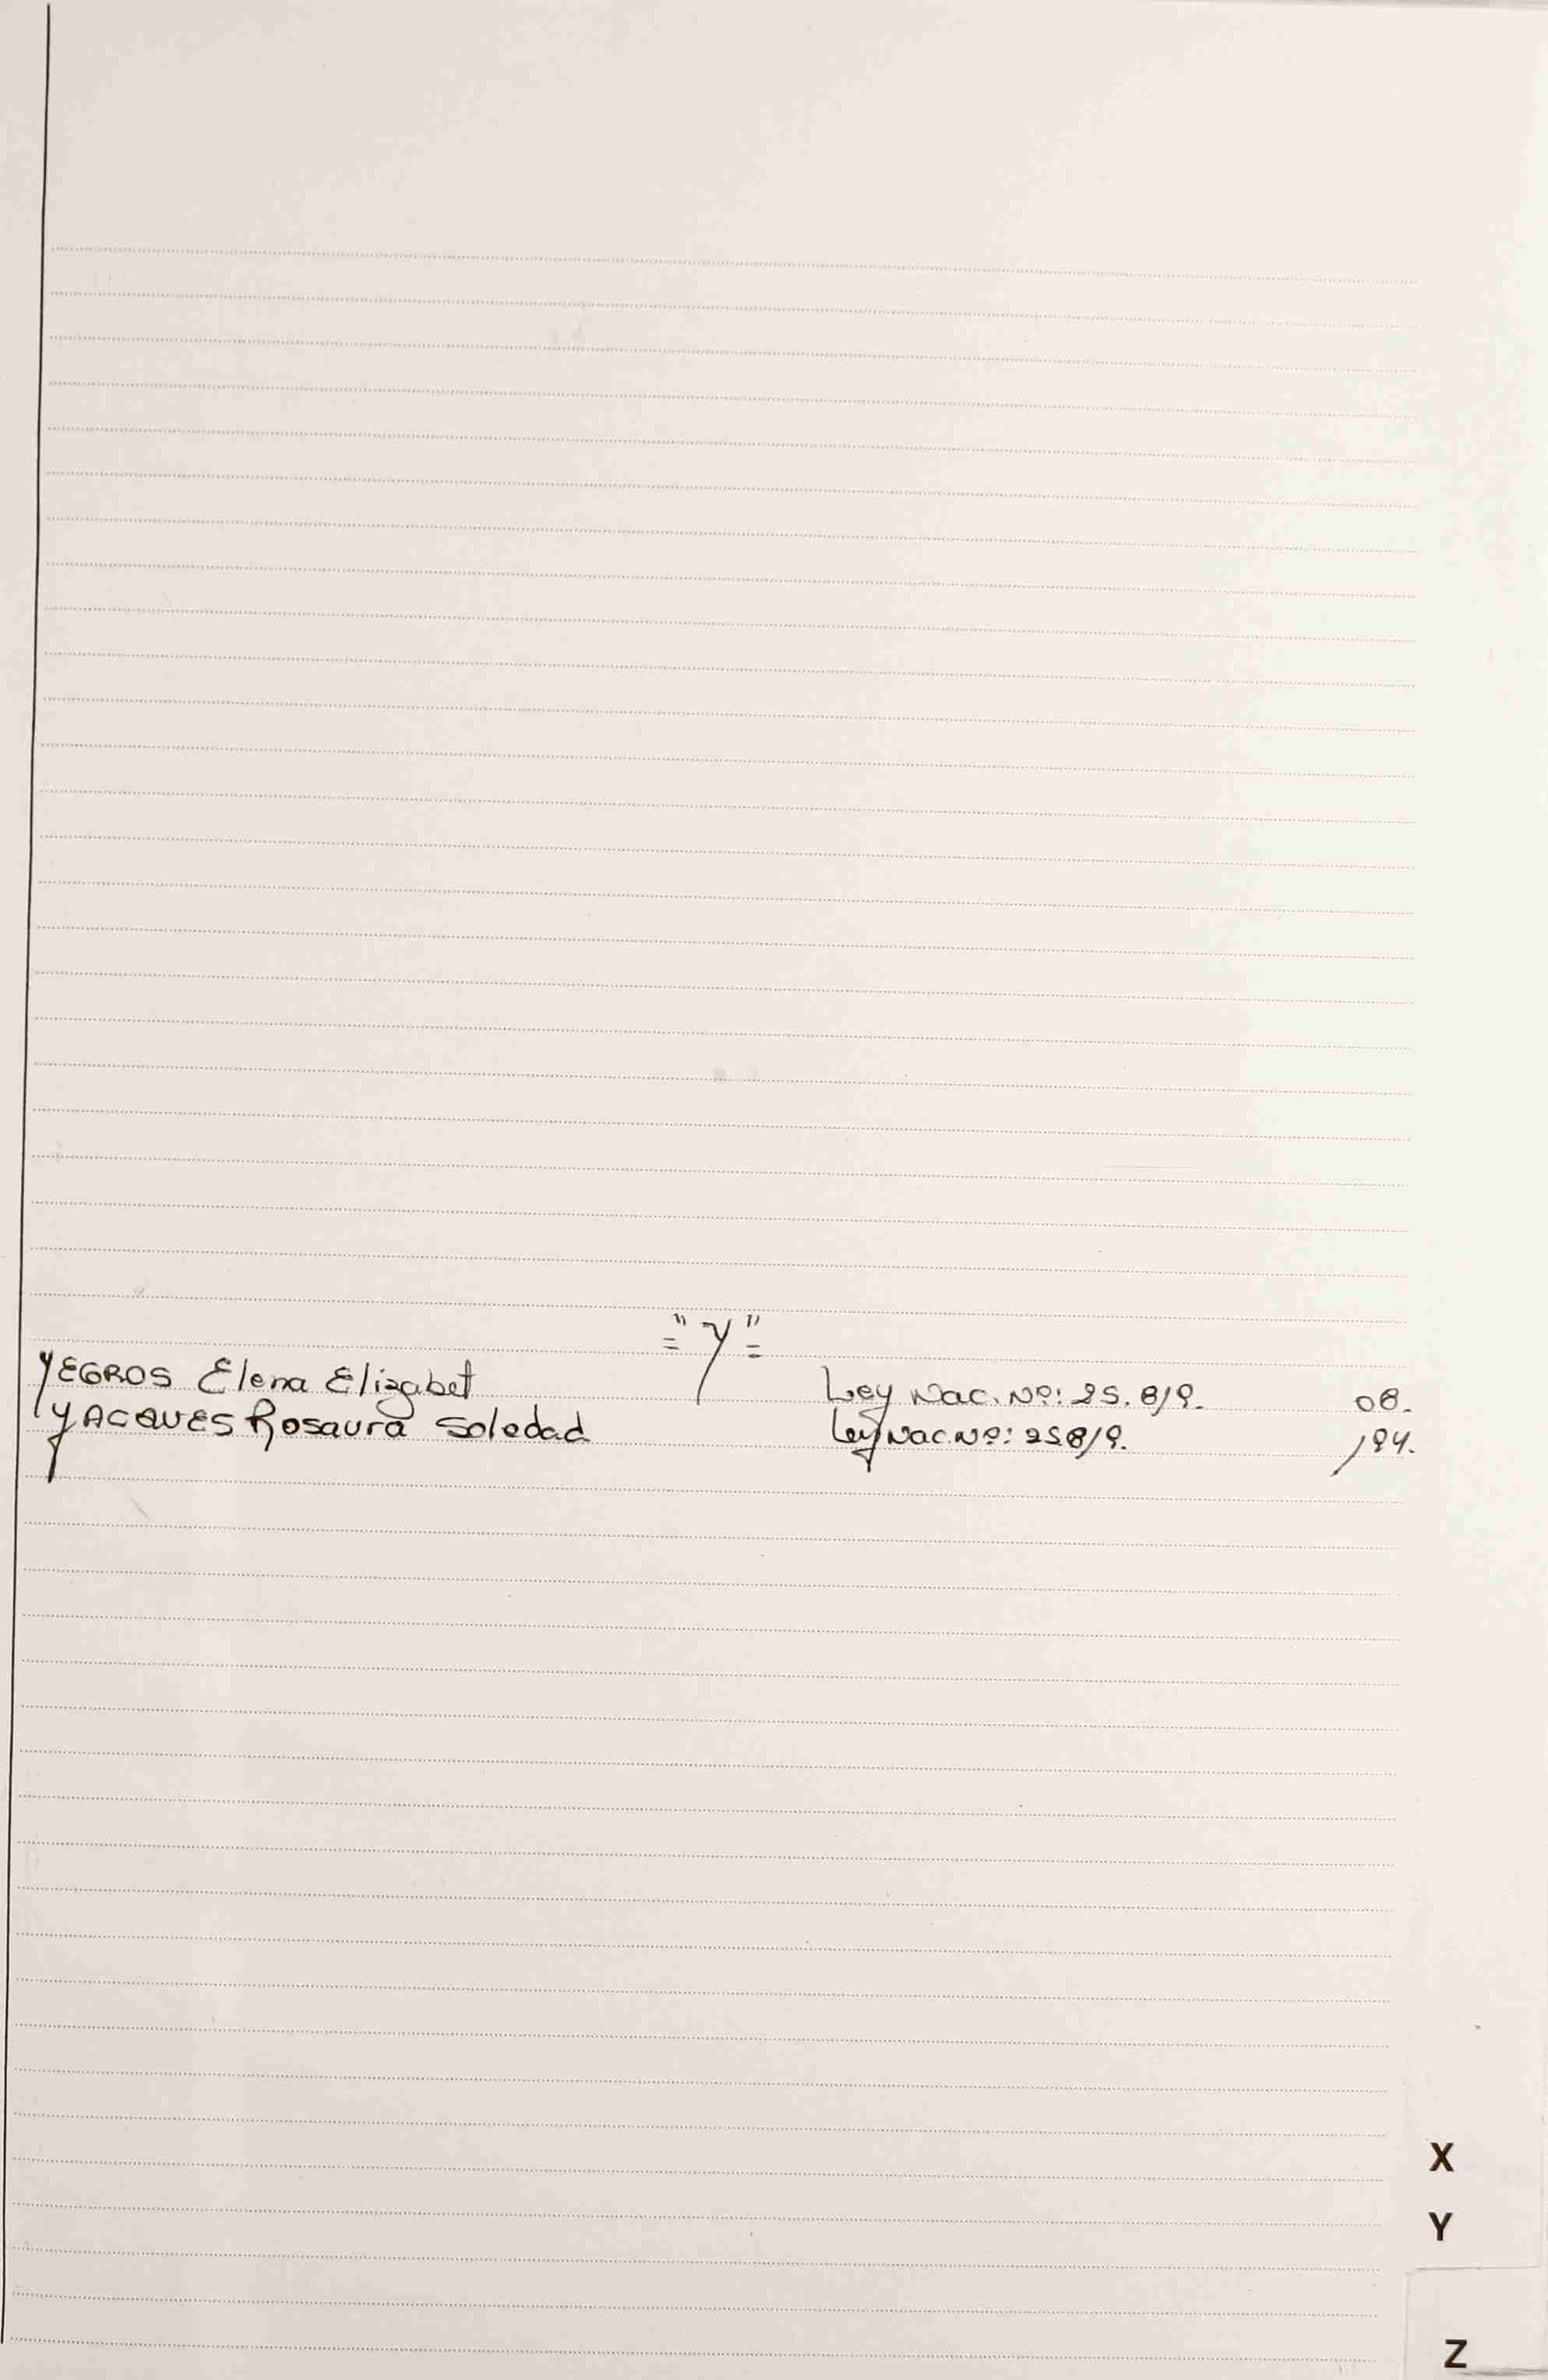 ="Y"=
YEGROS Elena Elizabet Ley Nac. Nº: 25.819. 08.
YACQUES Rosaura Soledad Ley Nac. Nº: 25.819. 194.
X
Y
Z